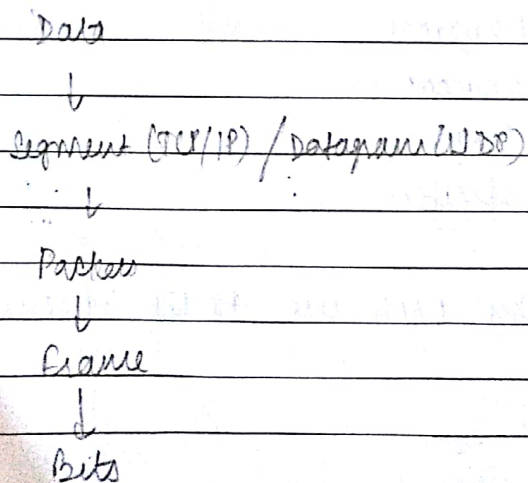 Data
↓
Segment (TCP/IP) / Datagram (UDP)
↓
Packets
↓
Frame
↓
Bits